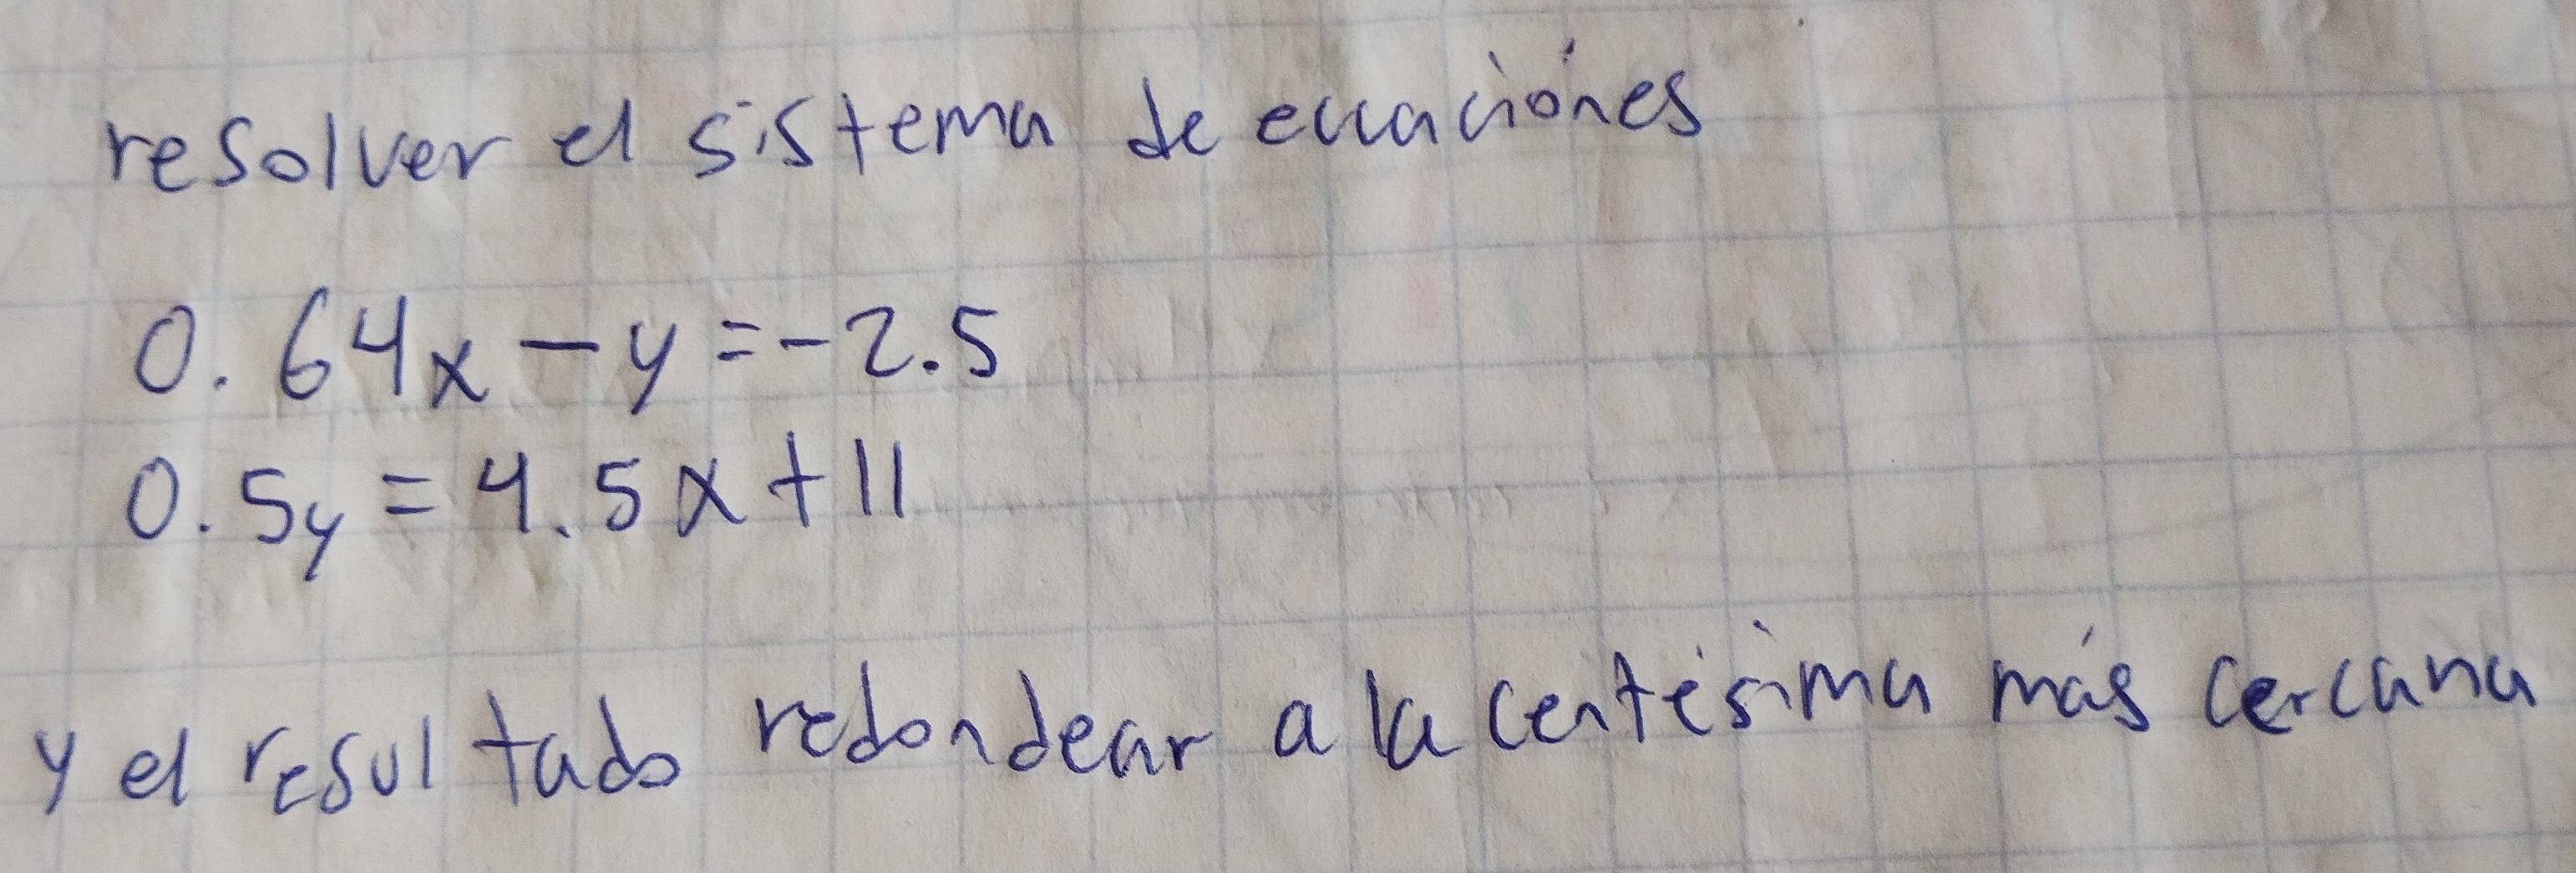 resolver el sistema de ecuaciónes
0.64x - y = -2.5
0.5y = 4.5x + 11
y el resultado redondear a la centésima más cercana